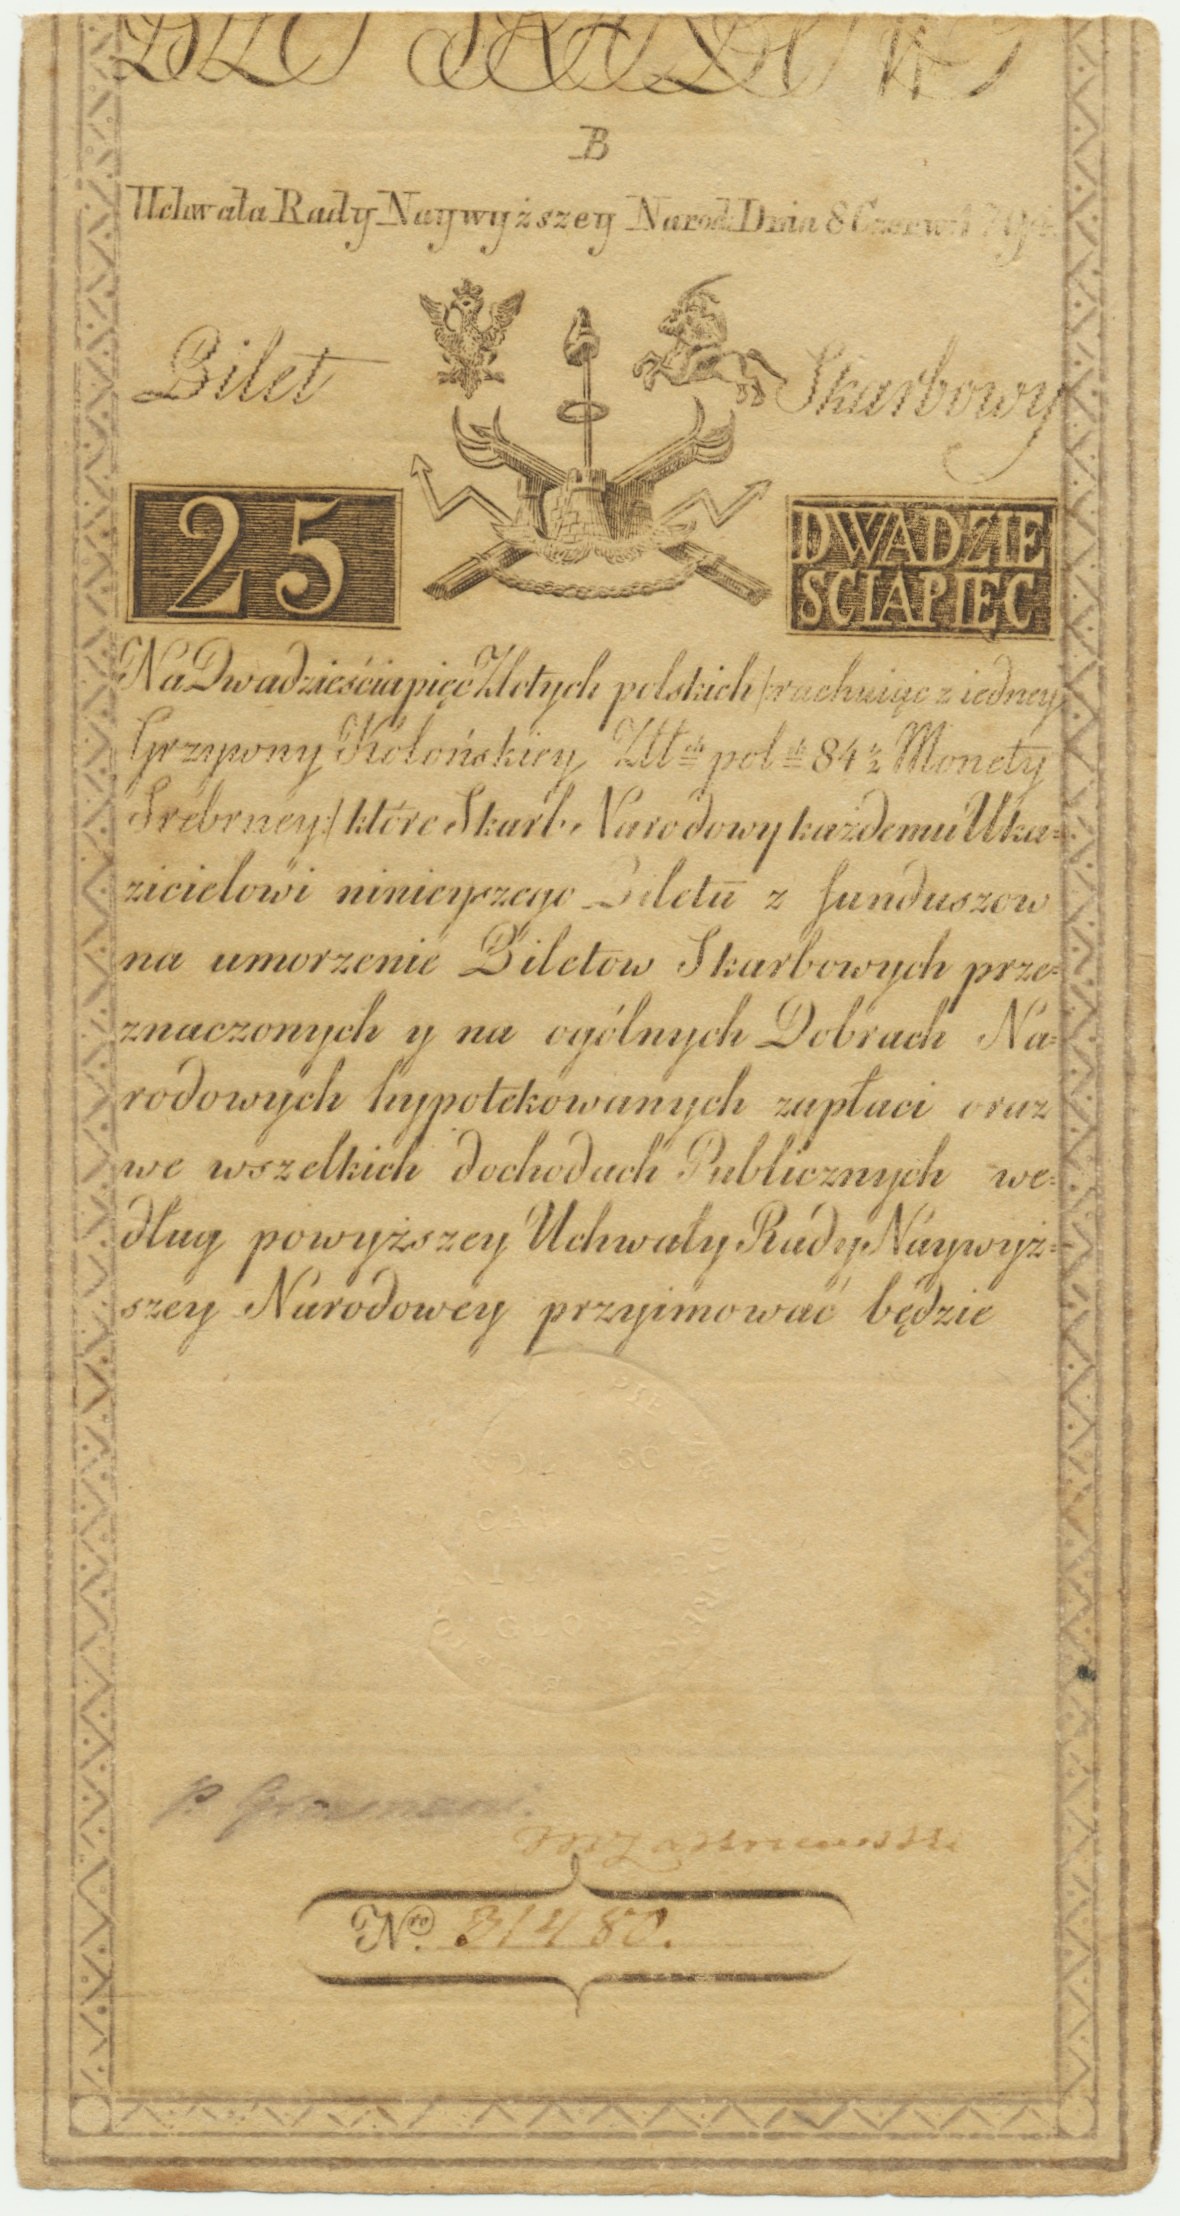 B
Uchwała Rady Naywyższey Narod: Dnia 8 Czerwca 1794
Bilet Skarbowy
25
DWADZIE
SCIAPIĘC
Na Dwadzieścia pięć Złotych polskich /:rachuiąc z iedney
Grzywny Kolońskiey Złł:ch pol:ch 84 ½ Monety
Srebrney:/ które Skarb Narodowy każdemu Uka=
zicielowi ninieyszego Biletu z funduszow
na umorzenie Biletow Skarbowych prze=
znaczonych y na ogólnych Dobrach Na=
rodowych hypotekowanych zapłaci oraz
we wszelkich dochodach Publicznych we=
dług powyższey Uchwały Rady Naywyż=
szey Narodowey przyimować będzie
Nro. 31480.